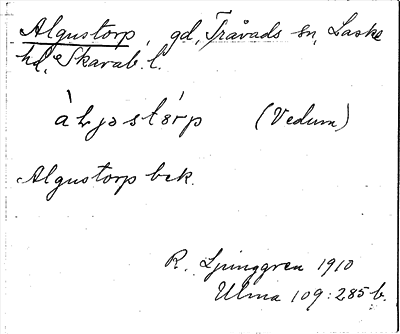 Algustorp, gd, Tråvads sn, Laske
hd, Skarab. l.
(Vedum)
Algustorp bek.
R. Ljunggren 1910
Ulma 109:285 b.